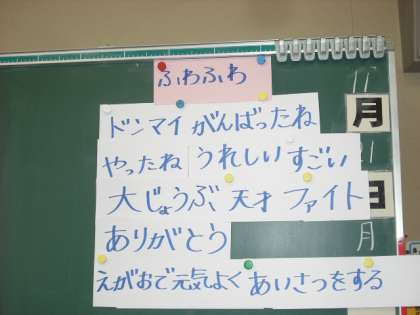 ふわふわ
ドンマイ がんばったね
やったね うれしい すごい
大じょうぶ 天才 ファイト
ありがとう
えがおで元気よく あいさつをする
11
月
21
日
月